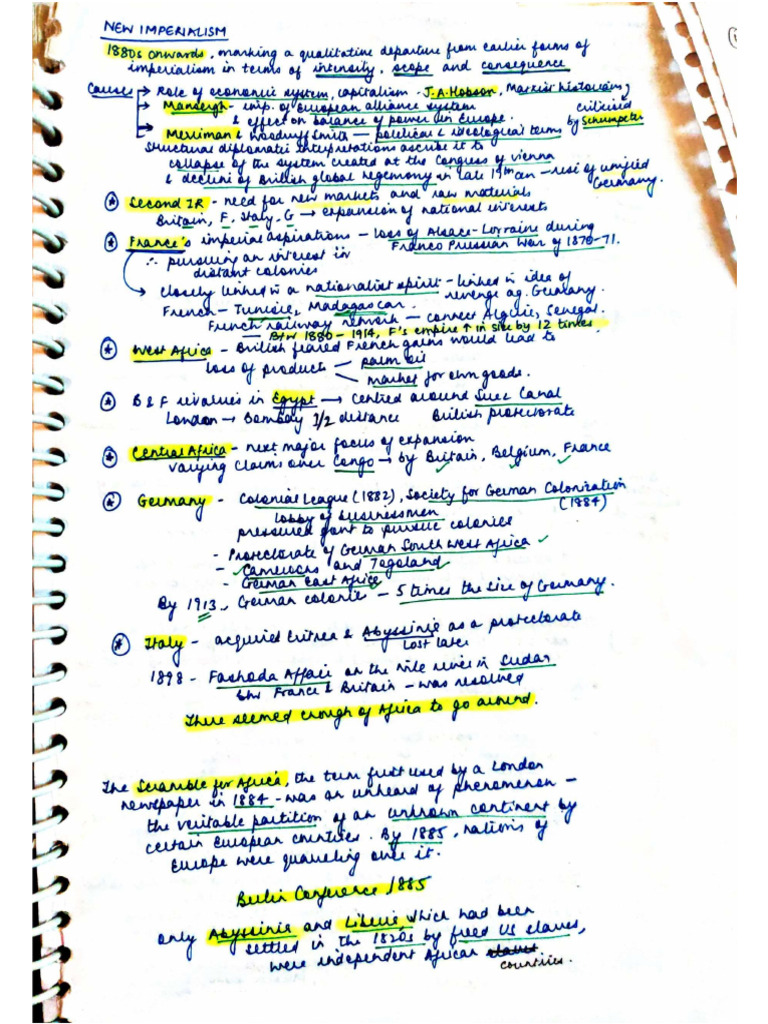 NEW IMPERIALISM
1880s onwards, marking a qualitative departure from earlier forms of
imperialism in terms of intensity, scope and consequence
Causes → Role of economic system, capitalism - J.A. Hobson, Marxist historians
→ Mansergh - imp. of European alliance system criticised
& effect on balance of power in Europe. by Schumpeter
→ Merriman & Woodruff Smith — political & ideological terms
Structural diplomatic interpretations ascribe it to
collapse of the system created at the Congress of Vienna
& decline of British global hegemony in late 19th cen - rise of unified
Germany.
* Second IR - need for new markets and raw materials
Britain, F, Italy, G → expansion of national interests
* France's imperial aspirations - loss of Alsace-Lorraine during
Franco Prussian War of 1870-71.
∴ pursuing an interest in
distant colonies
→ closely linked in a nationalist spirit - linked in idea of
revenge ag. Germany.
French - Tunisie, Madagascar.
French railway network - connect Algeria, Senegal.
— B/w 1880 - 1914, F's empire ↑ in size by 12 times
* West Africa - British feared French gains would lead to
loss of products — palm oil
— market for own goods.
* B & F rivalries in Egypt → centred around Suez Canal
London → Bombay 1/2 distance British protectorate
* Central Africa - next major focus of expansion
varying claims over Congo → by Britain, Belgium, France
* Germany - Colonial League (1882), Society for German Colonization
(1884)
lobby of businessmen
pressured govt to pursue colonies
- Protectorate of German South West Africa
- Cameroons and Togoland
- German East Africa
By 1913, German colonies - 5 times the size of Germany.
* Italy - acquired Eritrea & Abyssinia as a protectorate
lost later
1898 - Fashoda Affair on the nile river in Sudan
b/w France & Britain - was resolved
There seemed enough of Africa to go around.
The Scramble for Africa, the term first used by a London
newspaper in 1884 - was an unheard of phenomenon -
the veritable partition of an unknown continent by
certain European countries. By 1885, nations of
Europe were quarreling over it.
Berlin Conference 1885
only Abyssinia and Liberia which had been
settled in the 1820s by freed US slaves,
were independent African slaves
countries.